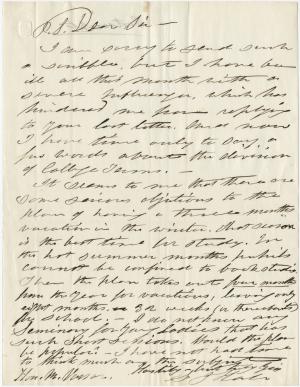 P.S. Dear Sir —
I am sorry to send such
a scribble, but I have been
ill all this month with a
severe Influenza, which has
hindered me from replying
to your last letter. And now
I have time only to say a
few words about the division
of College Terms. —
It seems to me that there are
some serious objections to the
plan of having a three months
vacation in the winter. That season
is the best time for study. In
the hot summer months pupils
cannot be confined to book studies
Then the plan takes out four months
from the Year for vacations, leaving only
months. — Or weeks for
School. — I do not know any
Seminary for Young Ladies that has
such short sessions. Would the plan
be popular. — I have not had time
to think much
Heartily
Hon. M. Vassar.